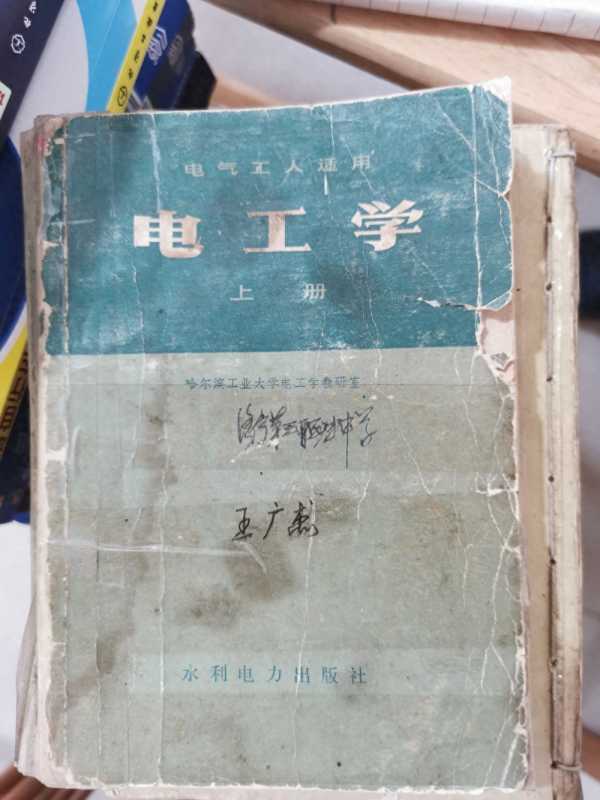 电气工人适用
电工学
上册
哈尔滨工业大学电工学教研室
王广杰
水利电力出版社